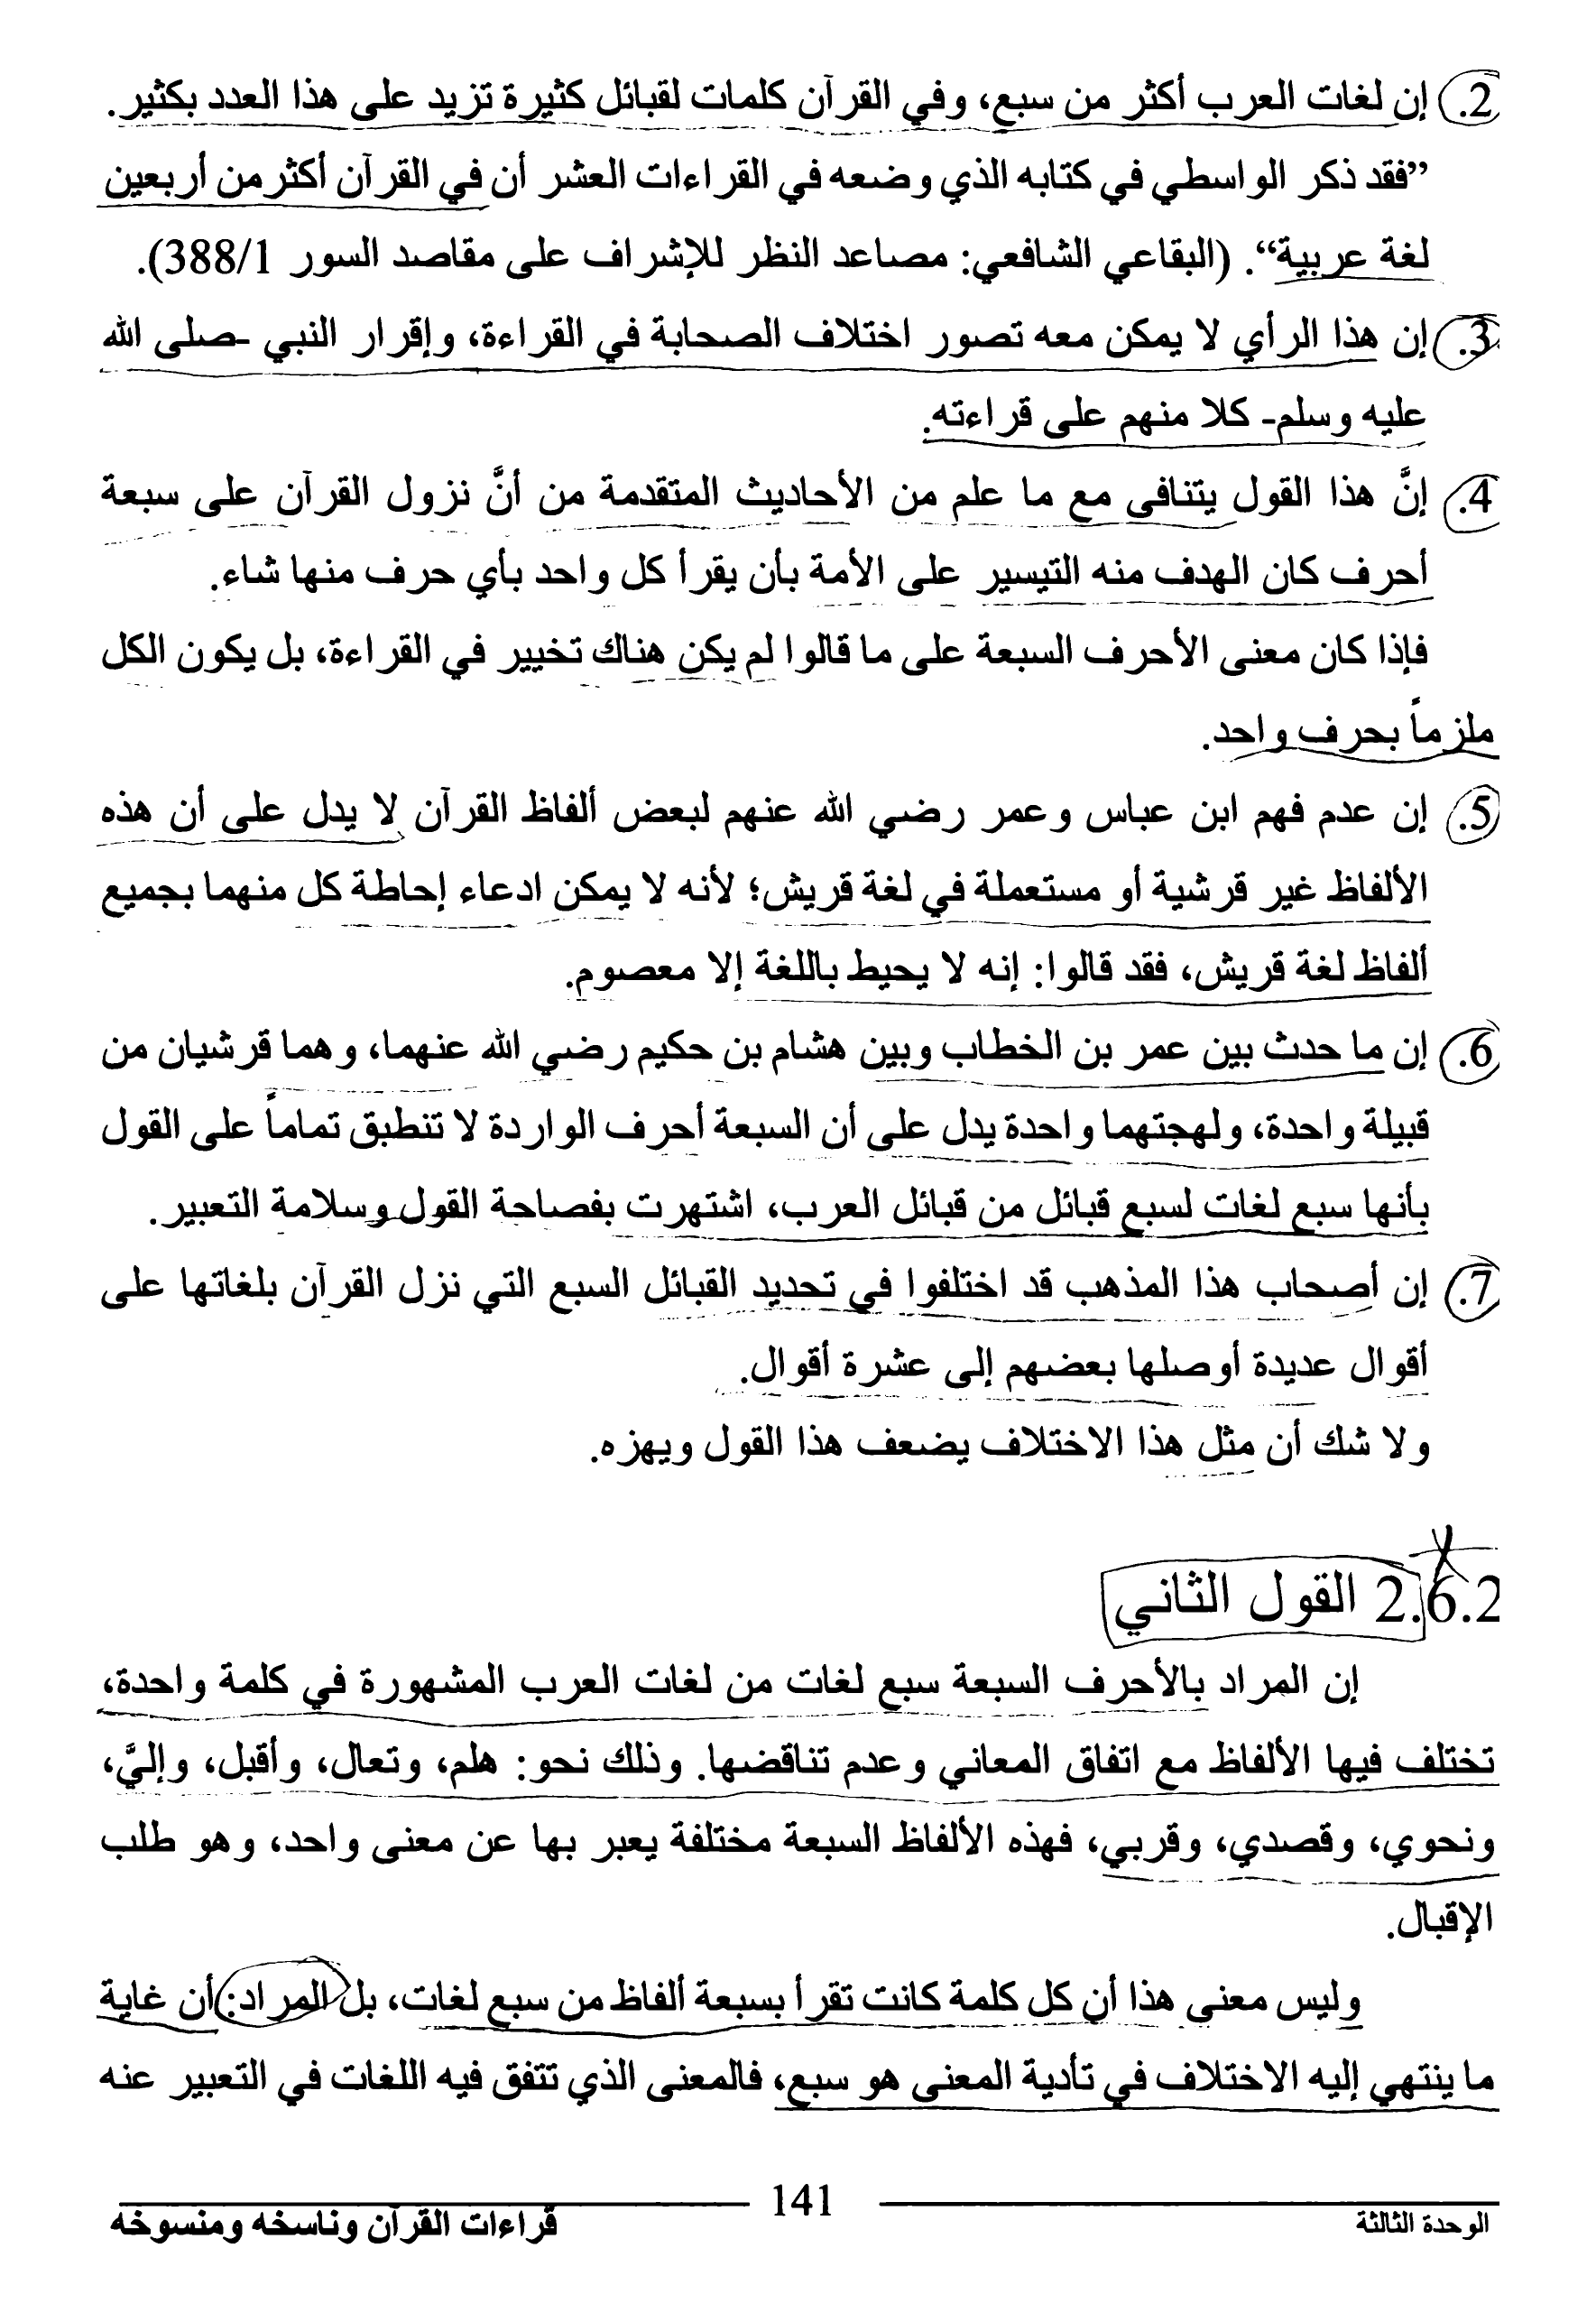 2. إن لغات العرب أكثر من سبع، وفي القرآن كلمات لقبائل كثيرة تزيد على هذا العدد بكثير.
”فقد ذكر الواسطي في كتابه الذي وضعه في القراءات العشر أن في القرآن أكثر من أربعين
لغة عربية“. (البقاعي الشافعي: مصاعد النظر للإشراف على مقاصد السور 388/1).
3. إن هذا الرأي لا يمكن معه تصور اختلاف الصحابة في القراءة، وإقرار النبي -صلى الله
عليه وسلم- كلا منهم على قراءته.
4. إنَّ هذا القول يتنافى مع ما علم من الأحاديث المتقدمة من أنَّ نزول القرآن على سبعة
أحرف كان الهدف منه التيسير على الأمة بأن يقرأ كل واحد بأي حرف منها شاء.
فإذا كان معنى الأحرف السبعة على ما قالوا لم يكن هناك تخيير في القراءة، بل يكون الكل
ملزماً بحرف واحد.
5. إن عدم فهم ابن عباس وعمر رضي الله عنهم لبعض ألفاظ القرآن لا يدل على أن هذه
الألفاظ غير قرشية أو مستعملة في لغة قريش؛ لأنه لا يمكن ادعاء إحاطة كل منهما بجميع
ألفاظ لغة قريش، فقد قالوا: إنه لا يحيط باللغة إلا معصوم.
6. إن ما حدث بين عمر بن الخطاب وبين هشام بن حكيم رضي الله عنهما، وهما قرشيان من
قبيلة واحدة، ولهجتهما واحدة يدل على أن السبعة أحرف الواردة لا تنطبق تماماً على القول
بأنها سبع لغات لسبع قبائل من قبائل العرب، اشتهرت بفصاحة القول وسلامة التعبير.
7. إن أصحاب هذا المذهب قد اختلفوا في تحديد القبائل السبع التي نزل القرآن بلغاتها على
أقوال عديدة أوصلها بعضهم إلى عشرة أقوال.
ولا شك أن مثل هذا الاختلاف يضعف هذا القول ويهزه.
2.6.2 القول الثاني
إن المراد بالأحرف السبعة سبع لغات من لغات العرب المشهورة في كلمة واحدة،
تختلف فيها الألفاظ مع اتفاق المعاني وعدم تناقضها. وذلك نحو: هلم، وتعال، وأقبل، وإليَّ،
ونحوي، وقصدي، وقربي، فهذه الألفاظ السبعة مختلفة يعبر بها عن معنى واحد، وهو طلب
الإقبال.
وليس معنى هذا أن كل كلمة كانت تقرأ بسبعة ألفاظ من سبع لغات، بل المراد: أن غاية
ما ينتهي إليه الاختلاف في تأدية المعنى هو سبع، فالمعنى الذي تتفق فيه اللغات في التعبير عنه
الوحدة الثالثة 141 قراءات القرآن وناسخه ومنسوخه